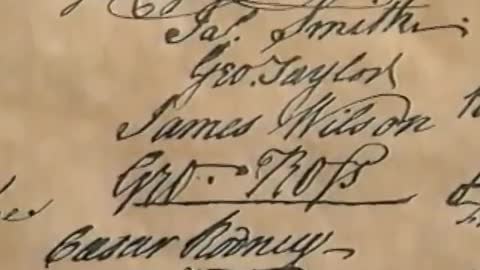 Jaˢ. Smith.
Geo. Taylor
James Wilson
Geo. Roſs
Caesar Rodney